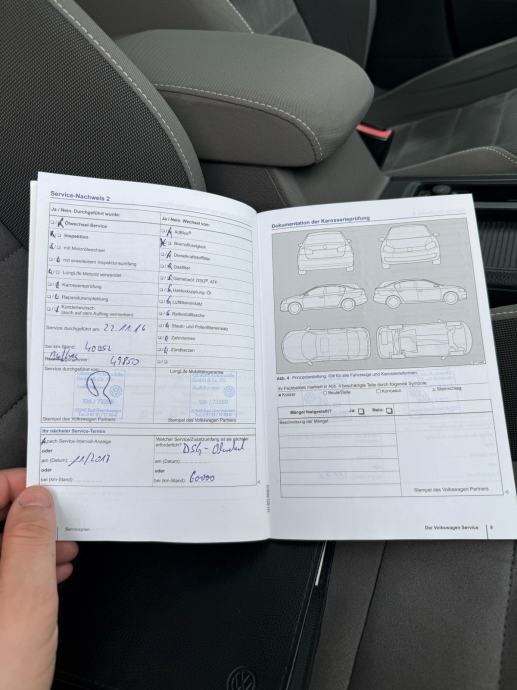 Service-Nachweis 2
Ja / Nein, Durchgeführt wurde:
Ölwechsel-Service
Inspektion
mit Motorölwechsel
mit erweitertem Inspektionsumfang
LongLife Motoröl verwendet
Karosserieprüfung
Reparaturempfehlung
Kundenwunsch
(auch auf dem Auftrag vermerken)
Ja / Nein, Wechsel von:
AdBlue®
Bremsflüssigkeit
Dieselkraftstofffilter
Gasfilter
Getriebeöl DSG®, ATF
Haldexkupplung, Öl
Luftfiltereinsatz
Reifenfüllflasche
Staub- und Pollenfiltereinsatz
Zahnriemen
Zündkerzen
Service durchgeführt am: 22.11.16
bei km-Stand: 40052
49850
Service durchgeführt von:
LongLife Mobilitätsgarantie:
Stempel des Volkswagen Partners
Stempel des Volkswagen Partners
Ihr nächster Service-Termin
nach Service-Intervall-Anzeige
oder
am (Datum): 11/2017
oder
bei (km-Stand):
Welcher Service/Zusatzumfang ist als nächster
erforderlich? DSG-Ölwechsel
am (Datum):
oder
bei (km-Stand): 60000
Serviceplan
Dokumentation der Karosserieprüfung
Abb. 4 Prinzipdarstellung: Gilt für alle Fahrzeuge und Karosserieformen.
Ihr Fachbetrieb markiert in Abb. 4 beschädigte Teile durch folgende Symbole:
Kratzer Beule/Delle Korrosion Steinschlag
Mängel festgestellt? Ja Nein
Beschreibung der Mängel:
Stempel des Volkswagen Partners
Der Volkswagen Service